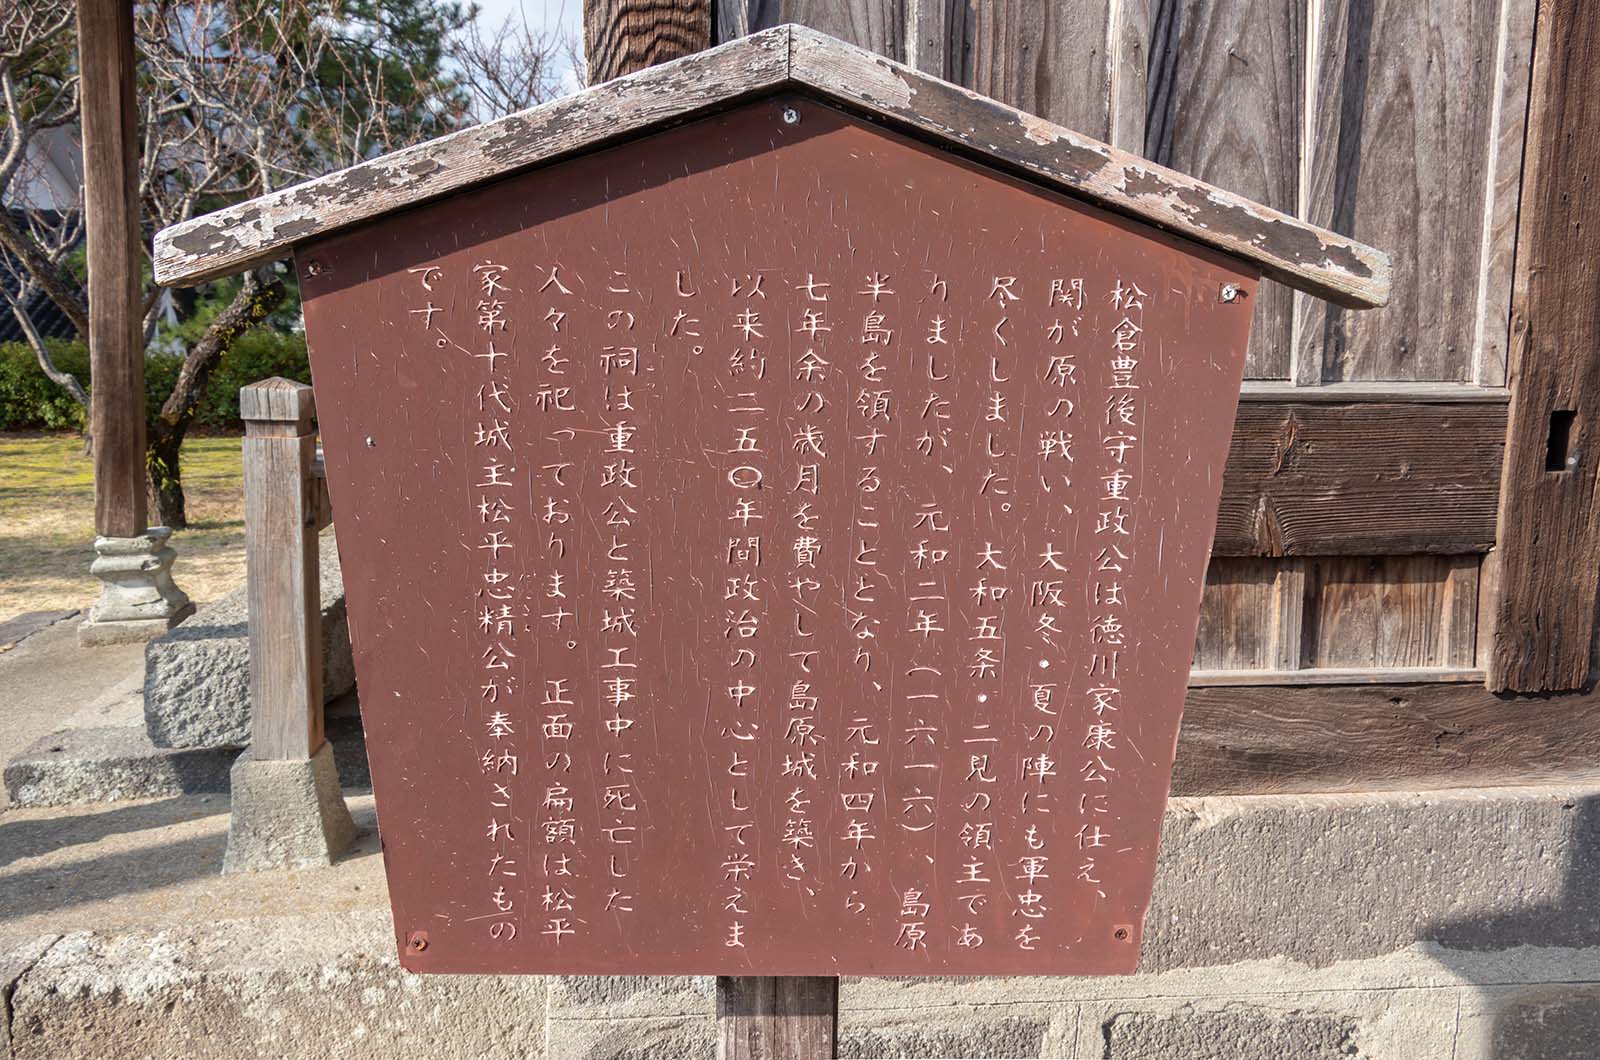 松倉豊後守重政公は徳川家康公に仕え、
関が原の戦い、大阪冬・夏の陣にも軍忠を
尽くしました。大和五条・二見の領主であ
りましたが、元和二年(一六一六)、島原
半島を領することとなり、元和四年から
七年余の歳月を費やして島原城を築き、
以来約二五〇年間政治の中心として栄えま
した。
この祠は重政公と築城工事中に死亡した
人々を祀っております。正面の扁額は松平
家第十代城主松平忠精公が奉納されたもの
です。